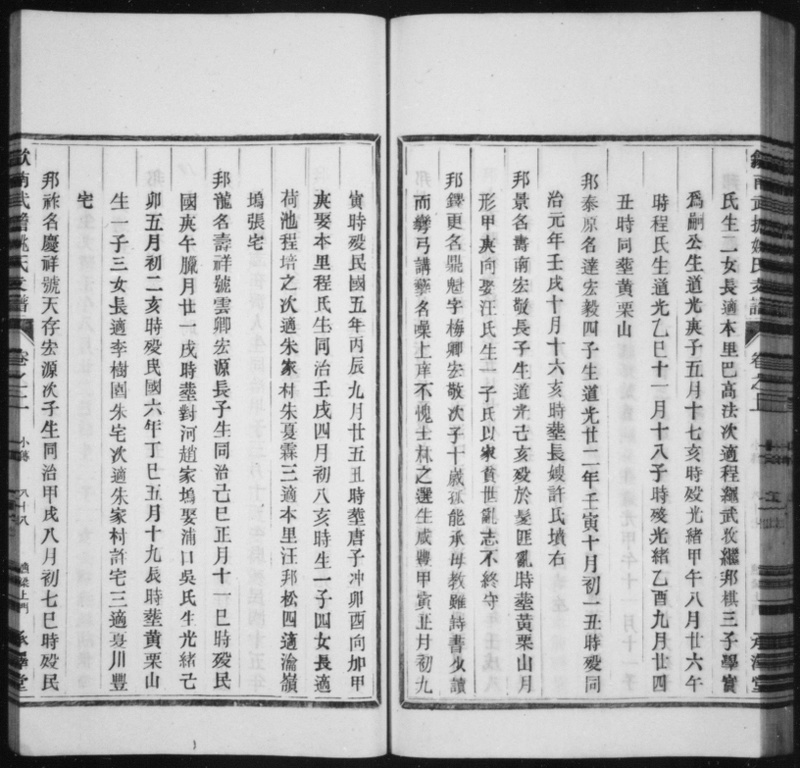 氏生二女長適本里巴高法次適程羅武攷繼邦棋三子學實
爲嗣公生道光庚子五月十七亥時歿光緒甲午八月廿六午
時程氏生道光乙巳十一月十八子時歿光緒乙酉九月廿四
丑時同塟黄栗山
邦泰原名達宏毅四子生道光廿二年壬寅十月初一丑時歿同
治元年壬戌十月十六亥時塟長嫂許氏墳右
邦景名書南宏敬長子生道光己亥歿於髮匪亂時塟黄栗山月
形甲庚向娶汪氏生一子氏以家貧世亂志不終守
邦鐸更名鼎魁字梅卿宏敬次子十歲孤能承母教雖詩書少讀
而彎弓講藝名噪上庠不愧士林之選生咸豐甲寅正月初九
寅時歿民國五年丙辰九月廿五丑時塟唐子冲卯酉向加甲
庚娶本里程氏生同治壬戌四月初八亥時生一子四女長適
荷池程培之次適朱家村朱夏霖三適本里汪邦松四適渝嶺
塢張宅
邦龍名壽祥號雲卿宏源長子生同治己巳正月十一巳時歿民
國庚午臘月廿一戌時塟對河趙家塢娶浦口吳氏生光緒己
卯五月初二亥時歿民國六年丁巳五月十九辰時塟黄栗山
生一子三女長適李樹園朱宅次適朱家村許宅三適夏川豐
宅
邦祚名慶祥號天存宏源次子生同治甲戌八月初七巳時歿民
承澤堂